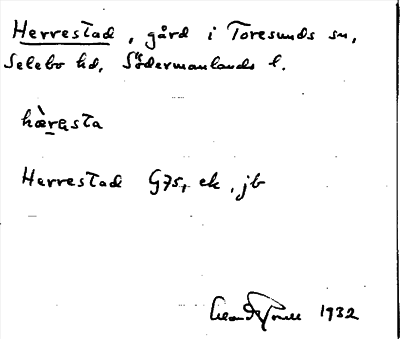 Herrestad, gård i Toresunds sn,
Selebo hd, Södermanlands l.
hæ̀rəsta
Herrestad G75, ek, jb
1932